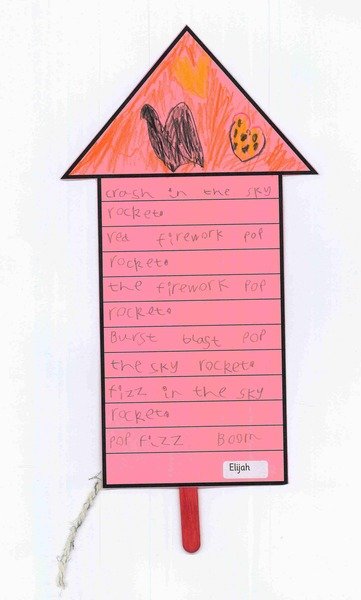 crash in the sky
rocket.
red firework pop
rocket.
the firework pop
rocket.
Burst blast pop
the sky rocket.
fizz in the sky
rocket.
pop fizz. Boom
Elijah